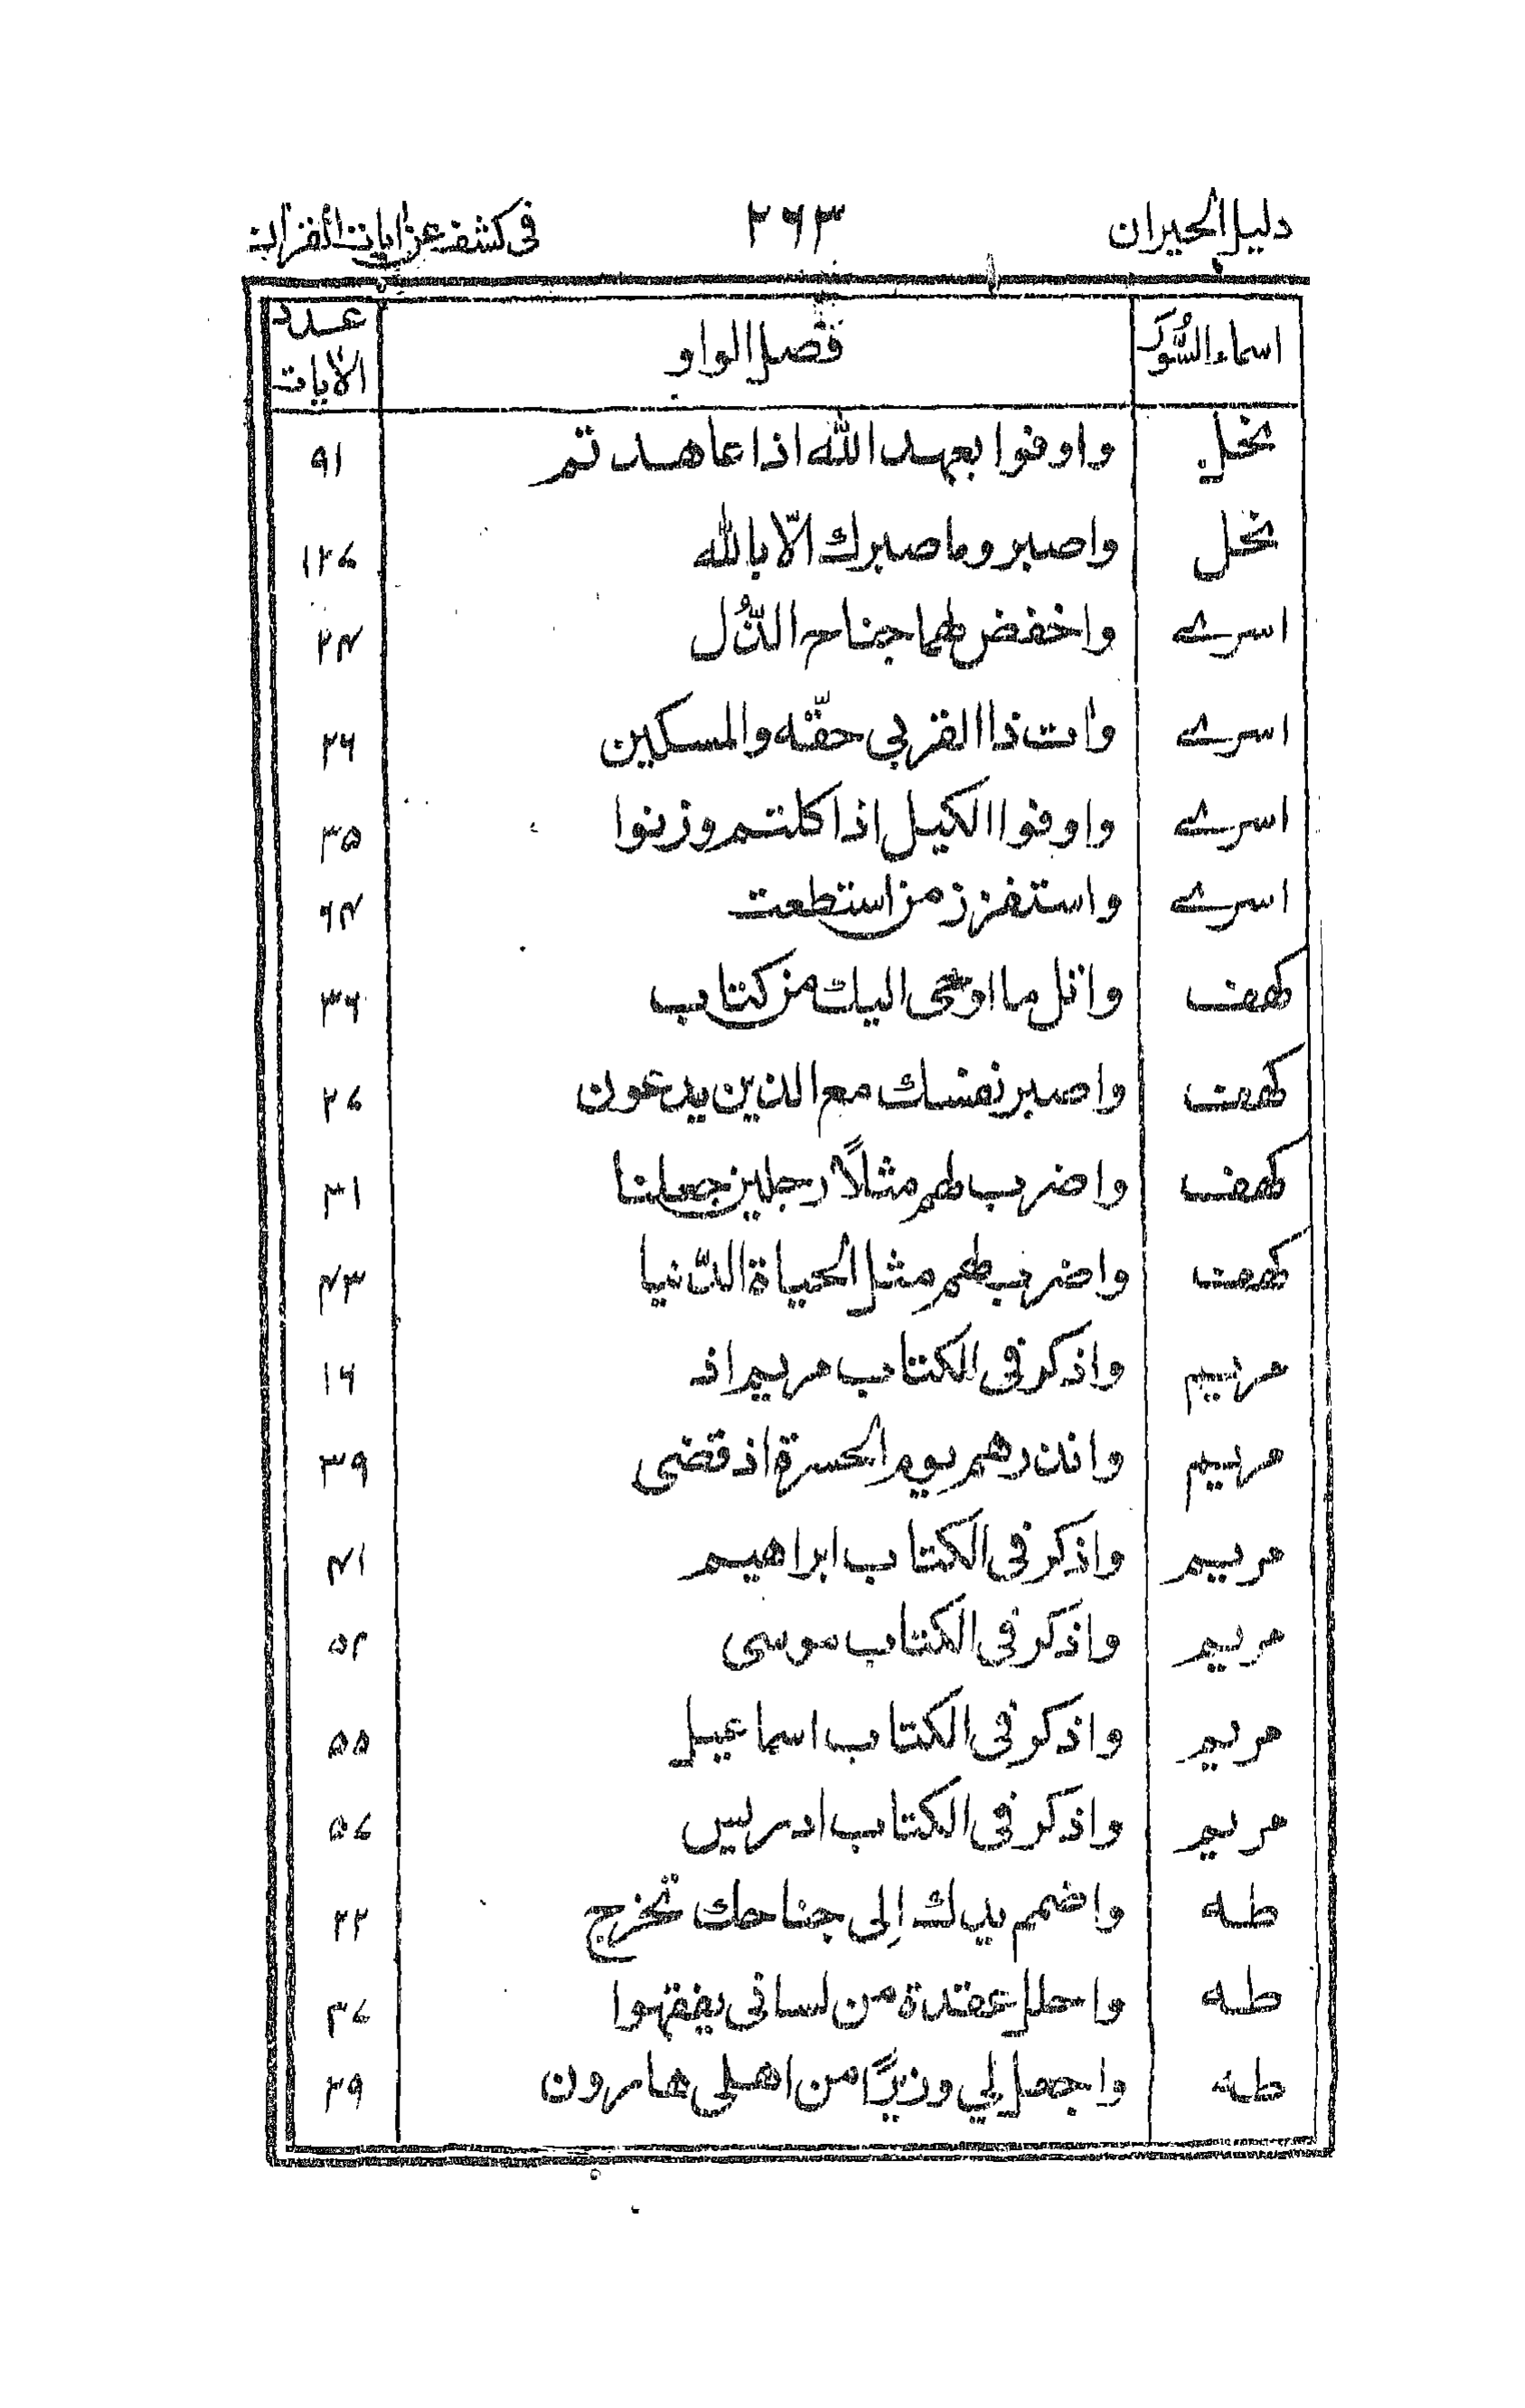 دليل الحيران ٢٦٣ فى كشف عن ايات القران
اسماء السُّوَر فصل الواو عدد الآيات
نحل واوفوا بعهد الله اذا عاهدتم ٩١
نحل واصبر وما صبرك الّا بالله ١٢٧
اسرى واخفض لهما جناح الذُّل ٢٤
اسرى واٰت ذا القربى حقّه والمسكين ٢٦
اسرى واوفوا الكيل اذا كلتم وزنوا ٣۵
اسرى واستفزز من استطعت ٦٤
كهف واتل ما اوحى اليك من كتاب
كهف واصبر نفسك مع الذين يدعون ٢٧
كهف واضرب لهم مثلًا رجلين جعلنا ٣١
كهف واضرب لهم مثل الحياة الدّنيا ٤٣
مريم واذكر فى الكتاب مريم اذ ١٦
مريم وانذرهم يوم الحسرة اذ قضى ٣٩
مريم واذكر فى الكتاب ابراهيم ٤١
مريم واذكر فى الكتاب موسى ۵٢
مريم واذكر فى الكتاب اسماعيل ۵۵
مريم واذكر فى الكتاب ادريس ۵٧
طه واضمم يدك اِلى جناحك تخرج ٢٢
طه واحلل عقدة من لسانى يفقهوا ٢٧
طه واجعل لي وزيرًا من اهلى هارون ٢٩